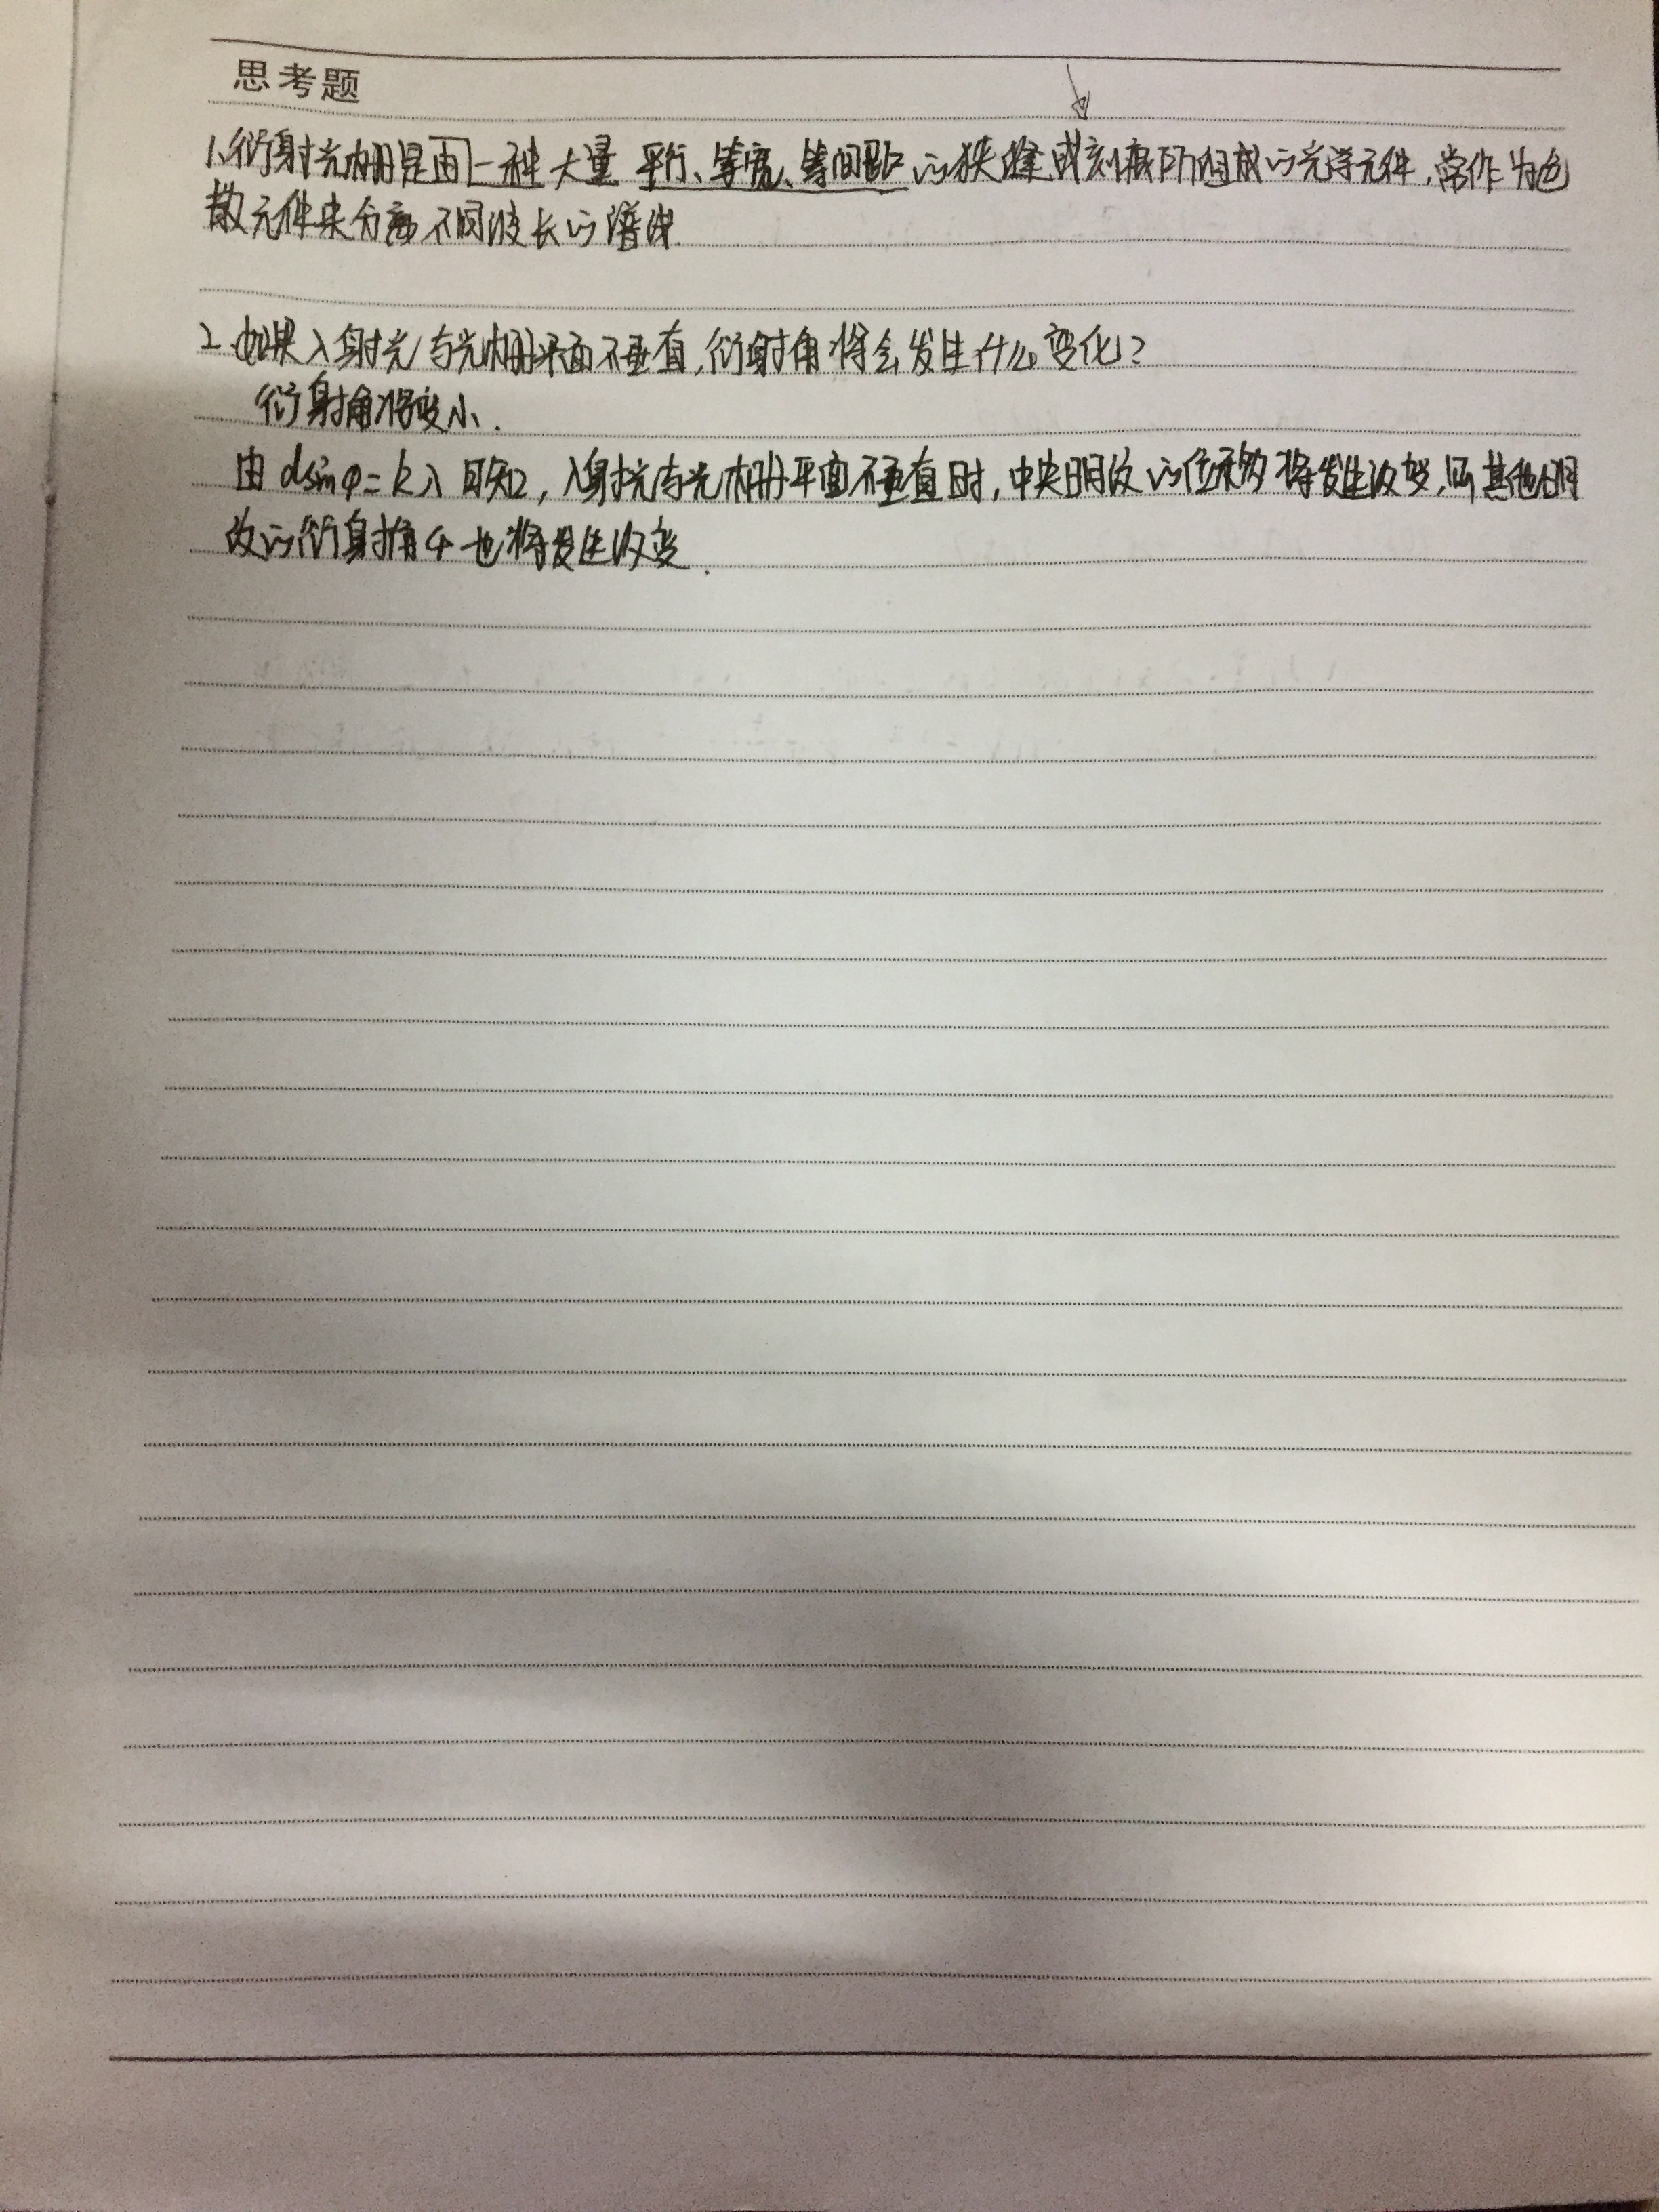 思考题
1.衍射光栅是由一种大量平行、等宽、等间距的狭缝或刻痕所组成的光学元件,常作为色
散元件来分离不同波长的谱线.
2.如果入射光与光栅平面不垂直,衍射角将会发生什么变化?
衍射角将变小.
由dsinφ=kλ可知,入射光与光栅平面不垂直时,中央明纹的位移将发生改变,而其他明
纹的衍射角φ也将发生改变.